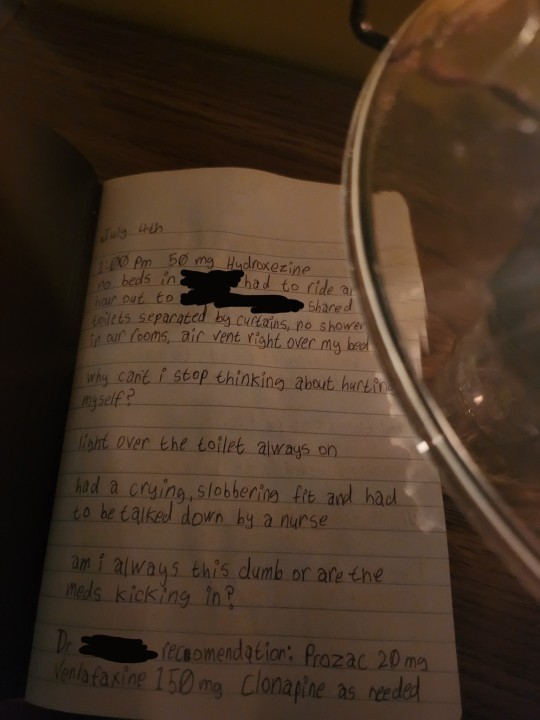 July 4th
1:00 pm 50 mg Hydroxezine
no beds in had to ride an
hour out to shared
toilets separated by curtains, no shower
in our rooms, air vent right over my bed
why can't i stop thinking about hurtin
myself?
light over the toilet always on
had a crying, slobbering fit and had
to be talked down by a nurse
am i always this dumb or are the
meds kicking in?
Dr recomendation: Prozac 20 mg
Venlafaxine 150 mg Clonapine as needed